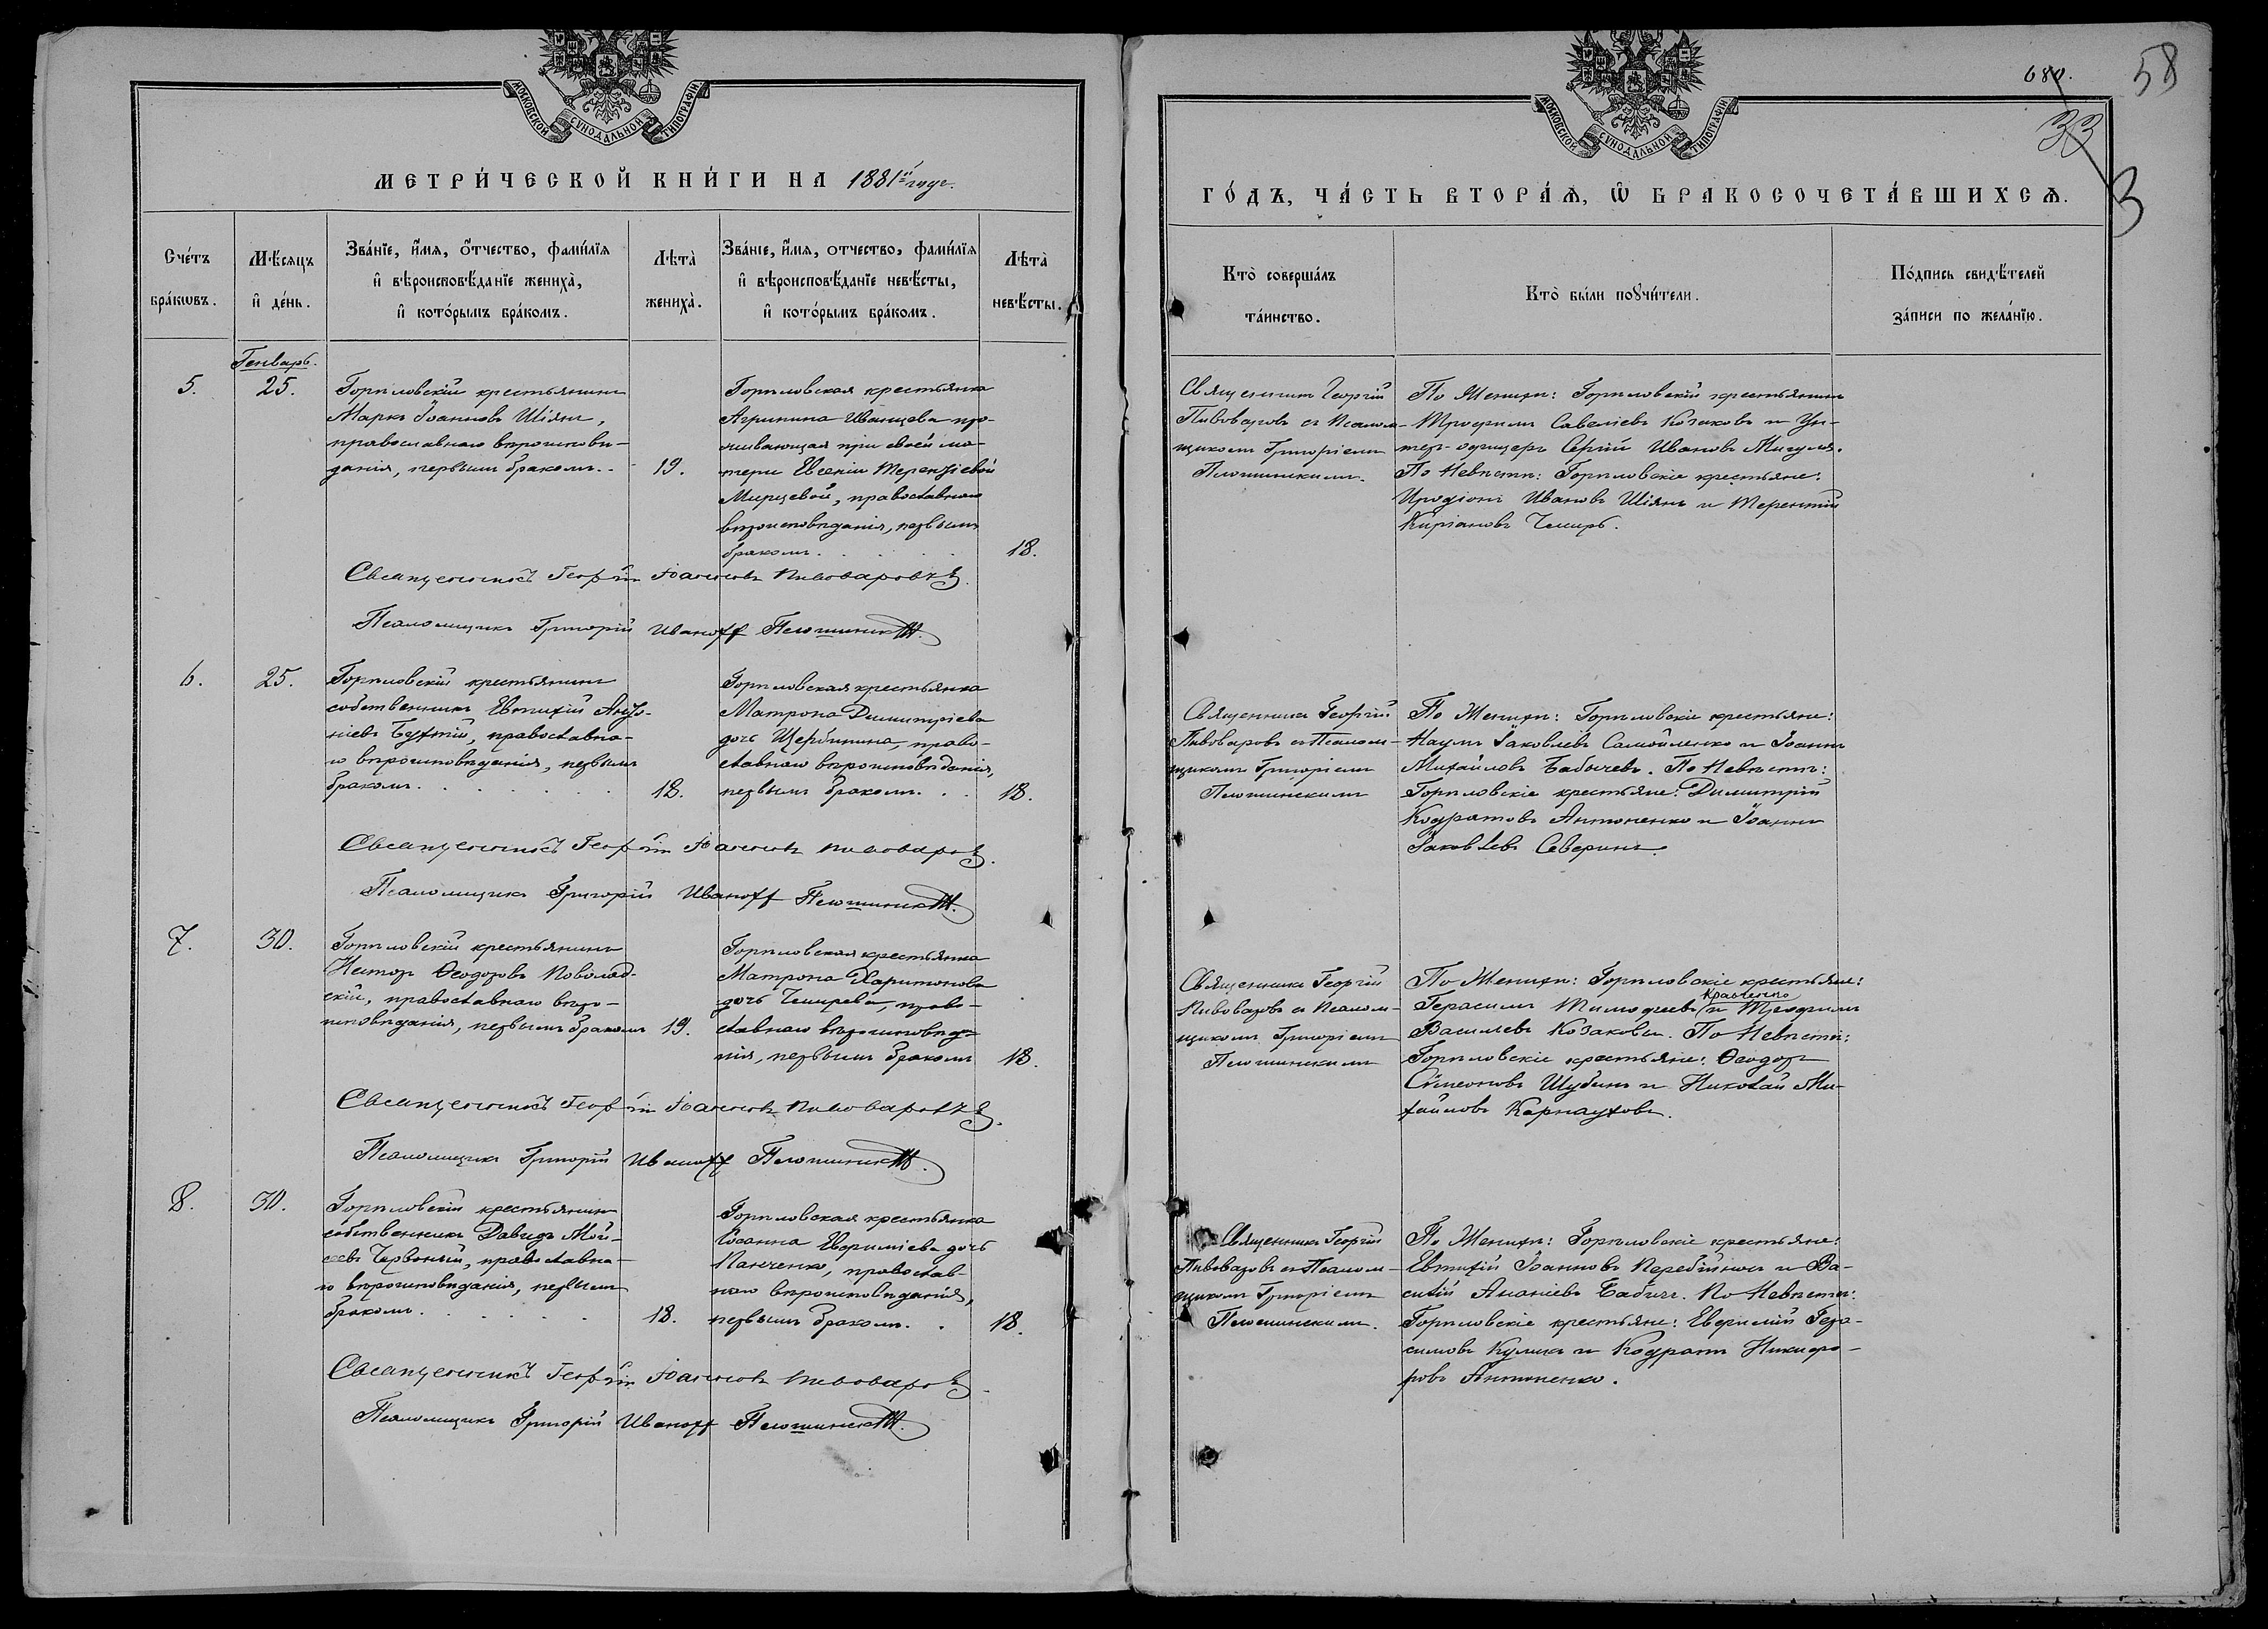 МОСКОВСКОЙ СѴНОДАЛЬНОЙ ТИПОГРАФІИ
МЕТРИ́ЧЕСКОЙ КНИ́ГИ НА 1881й годъ.
Сче́тъ бра́кωвъ.
Мѣ́сяцъ и҆ де́нь.
Зва́нїе, и҆́мя, ѻ҆́тчество, фами́лїя
и҆ вѣроисповѣ́данїе жениха̀,
и҆ кото́рымъ бра́комъ.
Лѣта̀ жениха̀.
Зва́нїе, и҆́мя, отчество, фами́лїя
и҆ вѣроисповѣ́данїе невѣ́сты,
и҆ кото́рымъ бра́комъ.
Лѣта̀ невѣ́сты.
Генварь.
5.
25.
Горѣловскій крестьянинъ
Маркъ Іоанновъ Шіянъ,
православнаго вѣроисповѣ-
данія, первымъ бракомъ.
19.
Горѣловская крестьянка
Агрипина Иванцева про-
живающая при своей ма-
тери Евгеніи Терентіевой
Мирцевой, православнаго
вѣроисповѣданія, первымъ
бракомъ.
18.
Священникъ Георгій Іоанновъ Пивоваровъ.
Псаломщикъ Григорій Иваноff
6.
25.
Горѣловскій крестьянинъ
собственникъ Евтихій
православна-
го вѣроисповѣданія, первымъ
бракомъ.
18.
Горѣловская крестьянка
Матрона Димитріева
дочь Щербинина, право-
славнаго вѣроисповѣданія,
первымъ бракомъ.
18.
Священникъ Георгій Іоанновъ Пивоваровъ.
Псаломщикъ Григорій Иваноff
7.
30.
Горѣловскій крестьянинъ
Несторъ Ѳеодоровъ Поволоц-
скій, православнаго вѣро-
исповѣданія, первымъ бракомъ
19.
Горѣловская крестьянка
Матрона Харитонова
дочь Чмирева, право-
славнаго вѣроисповѣда-
нія, первымъ бракомъ
18.
Священникъ Георгій Іоанновъ Пивоваровъ.
Псаломщикъ Григорій Иваноff
8.
30.
Горѣловскій крестьянинъ
собственникъ Давидъ Мой-
сеевъ Червоный, православна-
го вѣроисповѣданія, первымъ
бракомъ.
18.
Горѣловская крестьянка
Іоанна Евфиміева дочь
Панченко, православ-
наго вѣроисповѣданія,
первымъ бракомъ.
18.
Священникъ Георгій Іоанновъ Пивоваровъ
Псаломщикъ Григорій Иваноff
МОСКОВСКОЙ СѴНОДАЛЬНОЙ ТИПОГРАФІИ
680.
58
33
3
ГО́ДЪ, ЧА́СТЬ ВТОРА́Ѧ, Ѡ҆ БРАКОСОЧЕТА́ВШИХСѦ.
Кто̀ соверша́лъ
та́инство.
Кто̀ бы́ли порꙋчи́тели.
По́дпись свидѣ́телей
за́писи по жела́нїю.
Священникъ Георгій
Пивоваровъ съ Псалом-
щикомъ Григоріемъ
По Женихѣ: Горѣловскій крестьянинъ
Трофимъ Савеліевъ Козаковъ и Ун-
теръ-офицеръ Сергій Ивановъ Мигуля.
По Невѣстѣ: Горѣловскіе крестьяне:
Иродіонъ Ивановъ Шіянъ и Терентій
Киріановъ Чмирь.
Священникъ Георгій
Пивоваровъ съ Псалом-
щикомъ Григоріемъ
По Женихѣ: Горѣловскіе крестьяне:
Наумъ Іаковлевъ Самойленко и Іоаннъ
Михайловъ Бабычевъ. По Невѣстѣ:
Горѣловскіе крестьяне: Димитрій
Кодратовъ Антоненко и Іоаннъ
Іаковлевъ Северинъ.
Священникъ Георгій
Пивоваровъ съ Псалом-
щикомъ Григоріемъ
По Женихѣ: Горѣловскіе крестьяне:
Герасимъ Тимофеевъ Кравченко и Трофимъ
Васильевъ Козаковъ. По Невѣстѣ:
Горѣловскіе крестьяне: Ѳеодоръ
Симеоновъ Шубинъ и Николай Ми-
хайловъ Карнауховъ.
Священникъ Георгій
Пивоваровъ съ Псалом-
щикомъ Григоріемъ
По Женихѣ: Горѣловскіе крестьяне:
Евтихій Іоанновъ Перебійносъ и Ва-
силій Ананіевъ Бабичъ. По Невѣстѣ:
Горѣловскіе крестьяне: Евфимій Гера-
симовъ Куликъ и Кодратъ Никифо-
ровъ Антоненко.